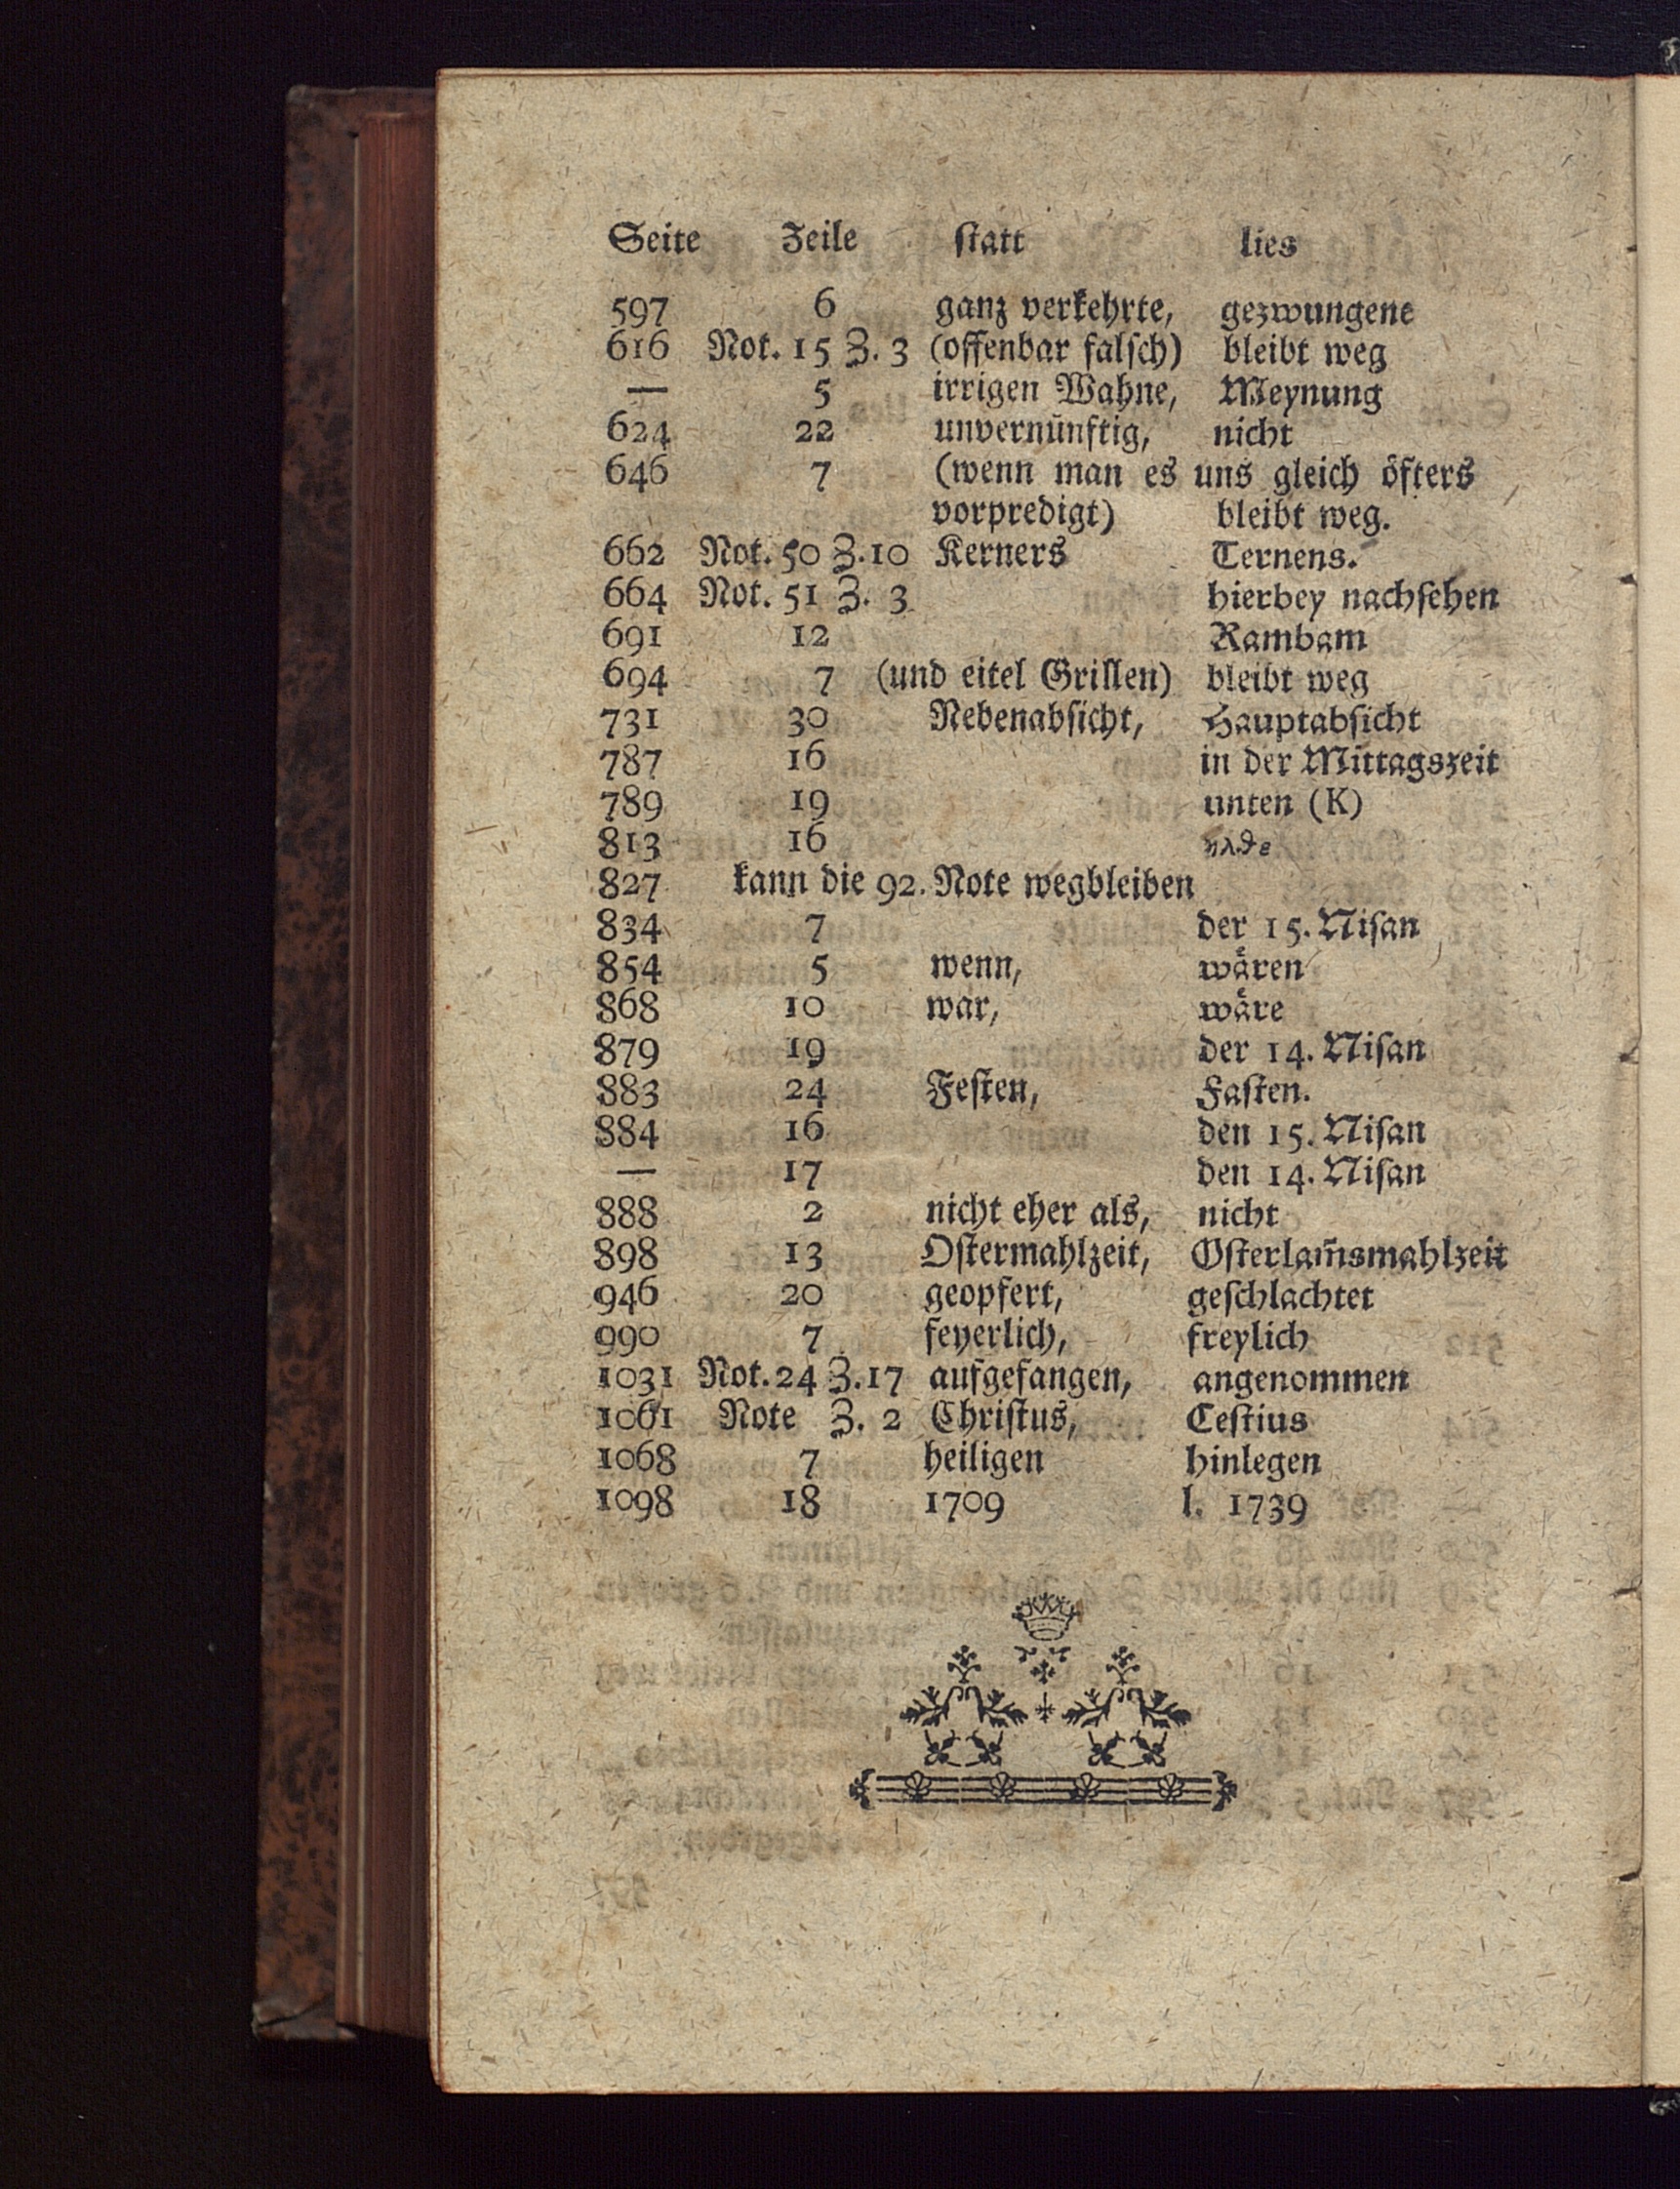 Seite Zeile ſtatt lies
597 6 ganz verkehrte, gezwungene
616 Not. 15 Z. 3 (offenbar falſch) bleibt weg
— 5 irrigen Wahne, Meynung
624 22 unvernünftig, nicht
646 7 (wenn man es uns gleich öfters
vorpredigt) bleibt weg.
662 Not. 50 Z. 10 Kerners Ternens.
664 Not. 51 Z. 3 hierbey nachſehen
691 12 Rambam
694 7 (und eitel Grillen) bleibt weg
731 30 Nebenabſicht, Hauptabſicht
787 16 in der Mittagszeit
789 19 unten (K)
813 16
827 kann die 92. Note wegbleiben
834 7 der 15. Niſan
854 5 wenn, wären
868 10 war, wäre
879 19 der 14. Niſan
883 24 Feſten, Faſten.
884 16 den 15. Niſan
— 17 den 14. Niſan
888 2 nicht eher als, nicht
898 13 Oſtermahlzeit, Oſterlam̃smahlzeit
946 20 geopfert, geſchlachtet
990 7 feyerlich, freylich
1031 Not. 24 Z. 17 aufgefangen, angenommen
1061 Note Z. 2 Chriſtus, Ceſtius
1068 7 heiligen hinlegen
1098 18 1709 l. 1739